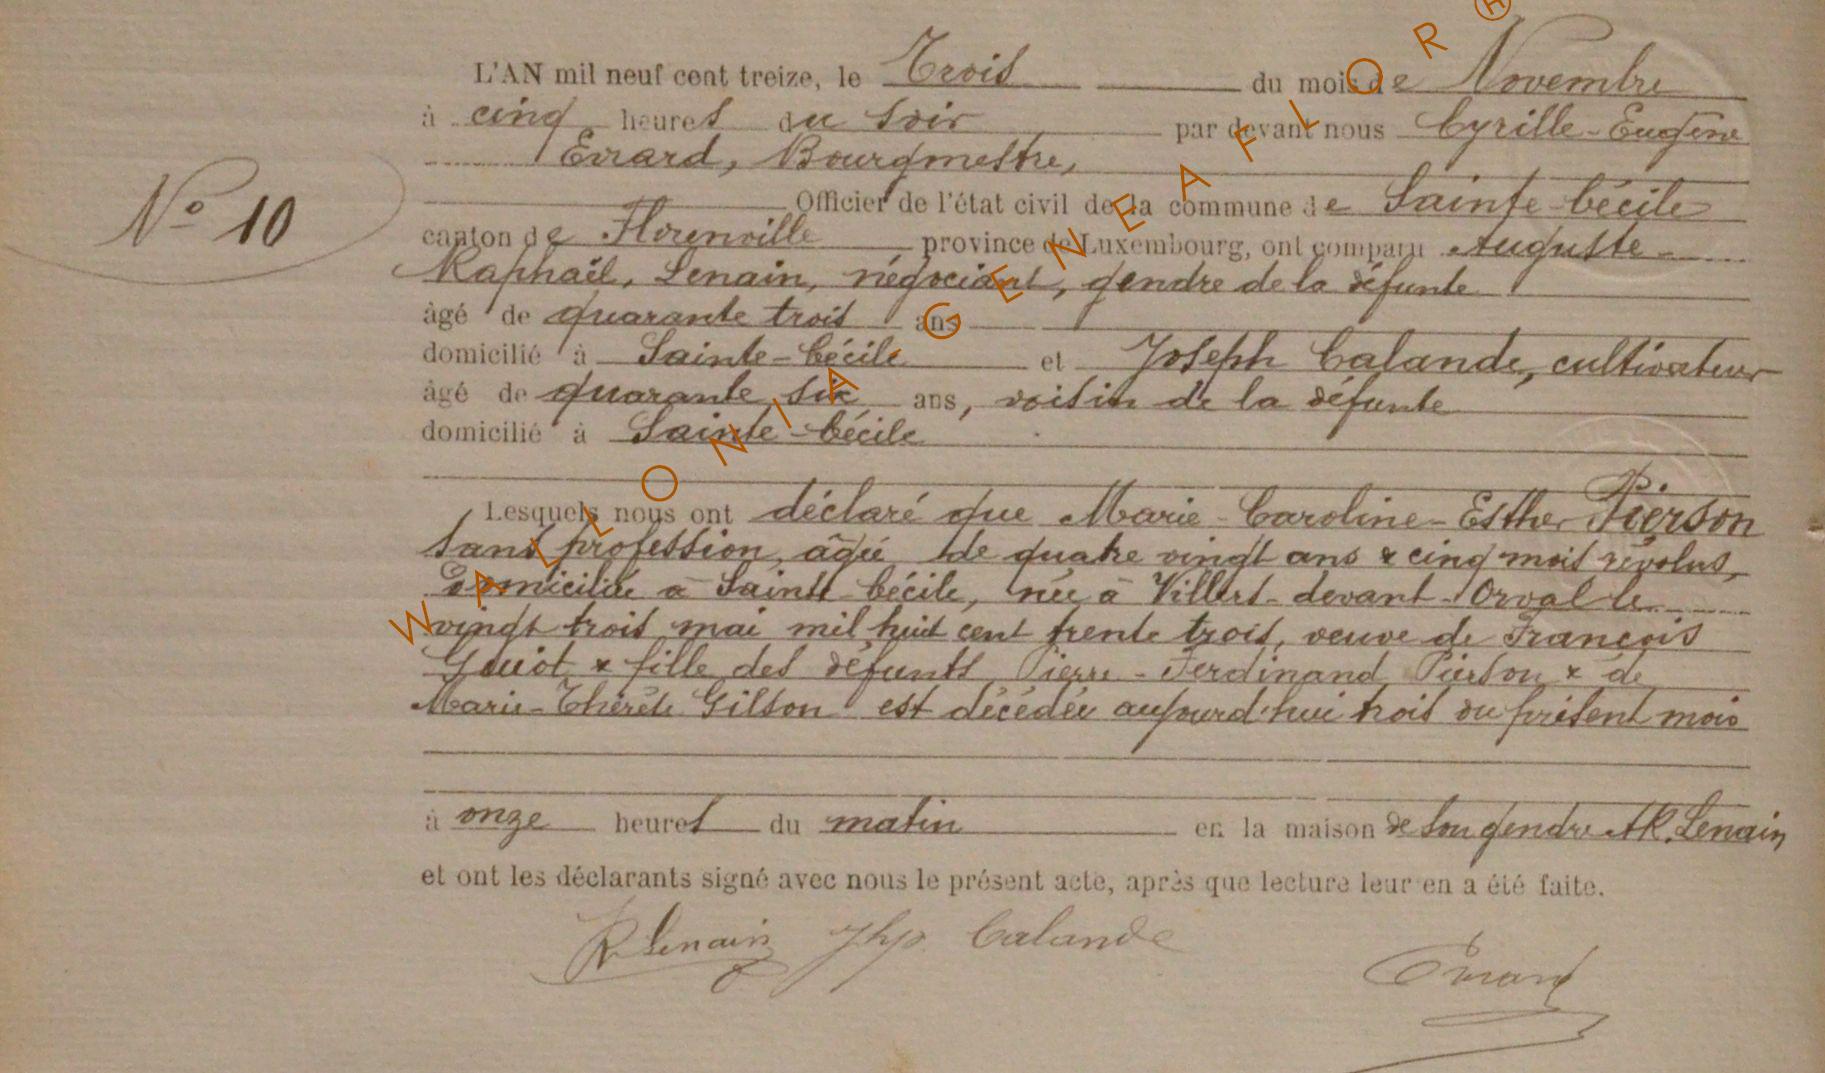 L'AN mil neuf cent treize, le Trois du mois de Novembre
à cinq heures du soir par devant nous Cyrille-Eugène
Evrard, Bourgmestre,
Officier de l'état civil de la commune de Sainte-Cécile
canton de Florenville province de Luxembourg, ont comparu Auguste-
Raphaël, Lenain, négociant, gendre de la défunte
N° 10
âgé de quarante trois ans
domicilié à Sainte-Cécile et Joseph Calande, cultivateur
âgé de quarante six ans, voisin de la défunte
domicilié à Sainte-Cécile
Lesquels nous ont déclaré que Marie-Caroline-Esther Pierson
sans profession, âgée de quatre vingt ans & cinq mois révolus,
domiciliée à Sainte Cécile, née à Villers-devant-Orval le
vingt trois mai mil huit cent trente trois, veuve de François
Guiot & fille des défunts Pierre-Ferdinand Pierson & de
Marie-Thérèse Gilson est décédée aujourd'hui trois du présent mois
à onze heures du matin en la maison de son gendre AR. Lenain
et ont les déclarants signé avec nous le présent acte, après que lecture leur en a été faite.
R Lenain Jhp. Calande
Evrard
WALLONIA.GENEAFLOR®